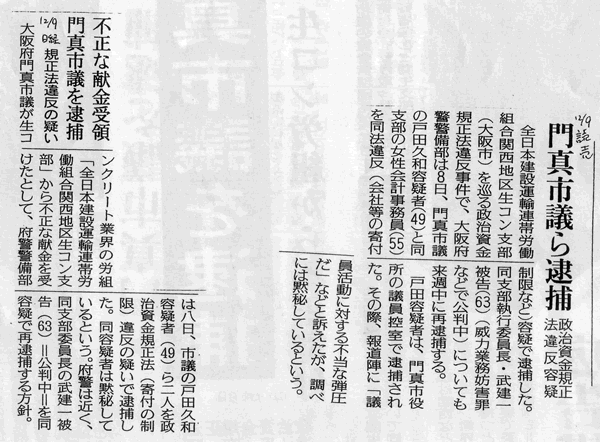 12/9
読売
門真市議ら逮捕
政治資金規正
法違反容疑
全日本建設運輸連帯労働
組合関西地区生コン支部
（大阪市）を巡る政治資金
規正法違反事件で、大阪府
警警備部は8日、門真市議
の戸田久和容疑者(49)と同
支部の女性会計事務員(55)
を同法違反（会社等の寄付
制限など）容疑で逮捕した。
同支部執行委員長・武建一
被告(63)（威力業務妨害罪
などで公判中）についても
来週中に再逮捕する。
戸田容疑者は、門真市役
所の議員控室で逮捕され
た。その際、報道陣に「議
員活動に対する不当な弾圧
だ」などと訴えたが、調べ
には黙秘しているという。
不正な献金受領
門真市議を逮捕
12/9
規正法違反の疑い
大阪府門真市議が生コ
ンクリート業界の労組
「全日本建設運輸連帯労
働組合関西地区生コン支
部」から不正な献金を受
けたとして、府警警備部
は八日、市議の戸田久和
容疑者（49）ら二人を政
治資金規正法（寄付の制
限）違反の疑いで逮捕し
た。同容疑者は黙秘して
いるという。府警は近く、
同支部委員長の武建一被
告（63）＝公判中＝を同
容疑で再逮捕する方針。